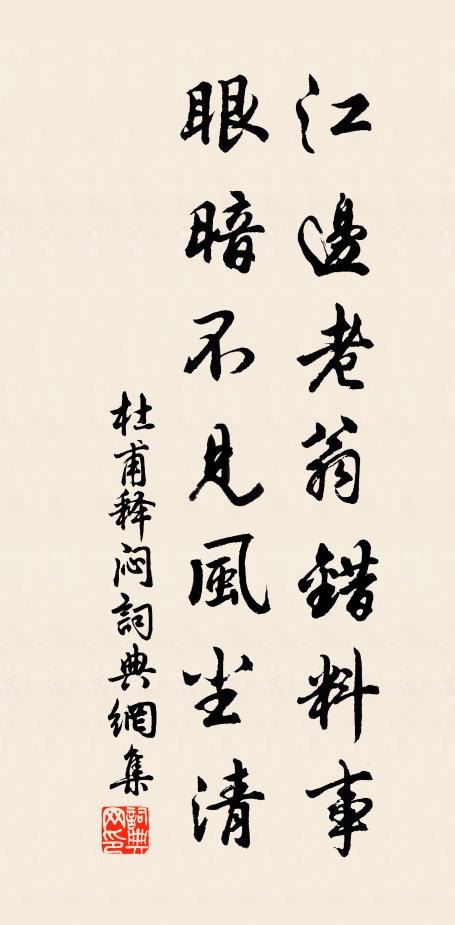 江邊老翁錯料事
眼暗不見風尘清
杜甫释闷詞典網集
詞典網印